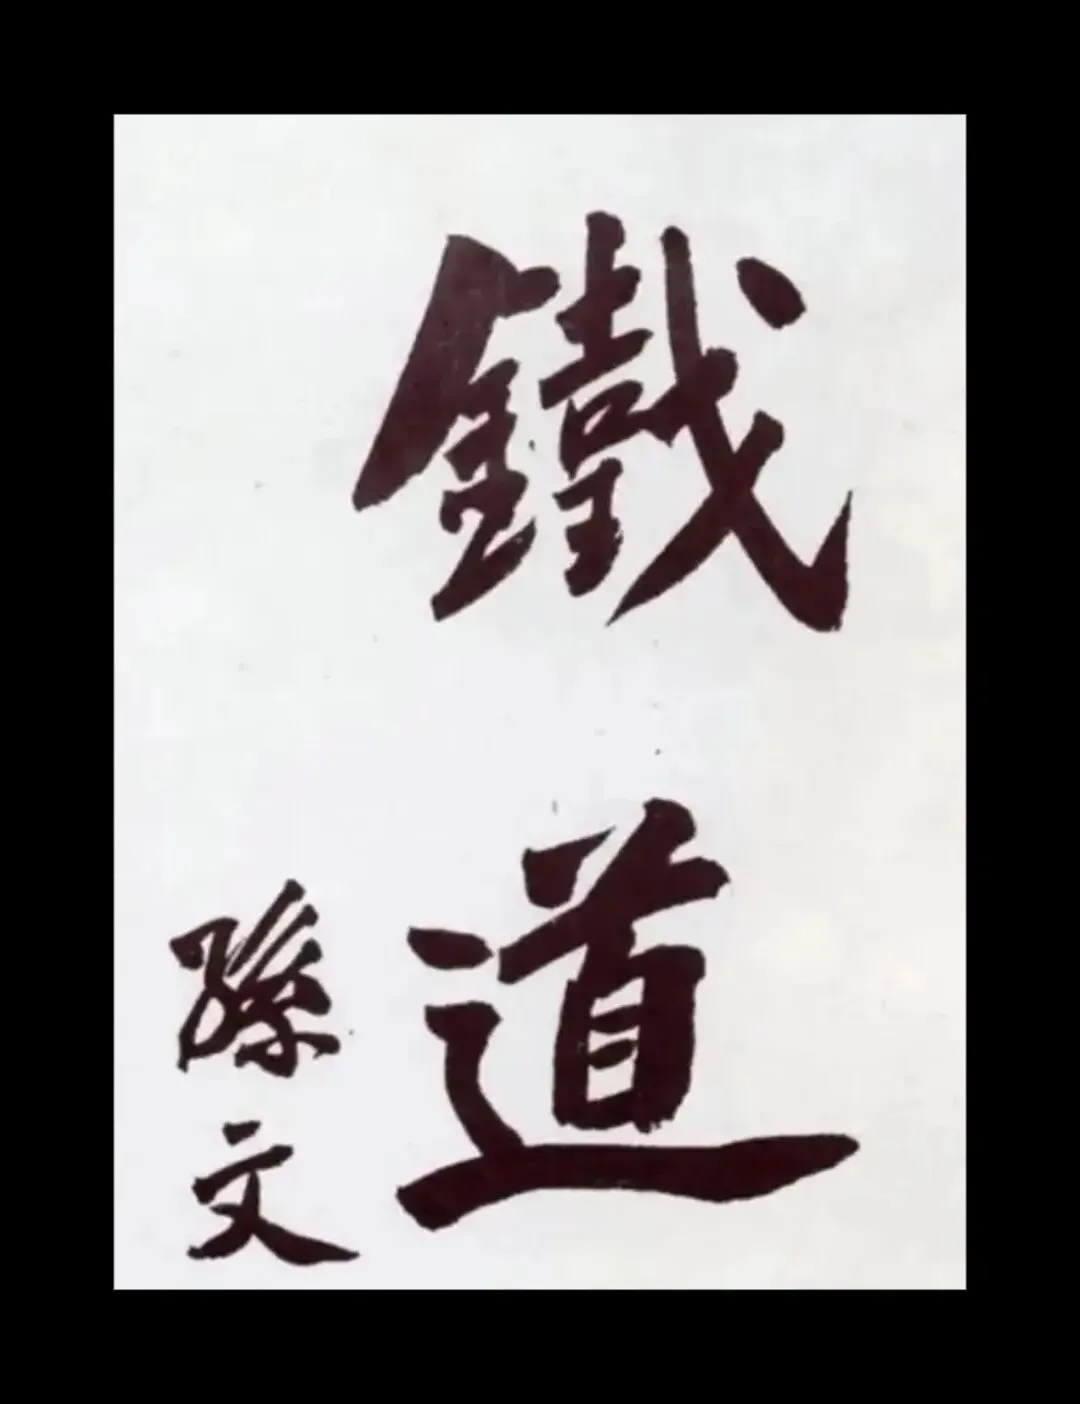 鐵道
孫文